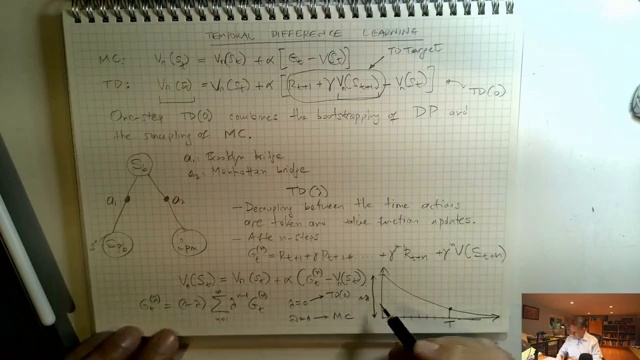 TEMPORAL DIFFERENCE LEARNING
MC: Vη(St) = Vη(St) + α [Gt − V(St)]
TD Target
TD: Vη(St) = Vη(St) + α [Rt+1 + γ Vη(St+1) − Vη(St)] TD(0)
One-step TD(0) combines the bootstrapping of DP and
the sampling of MC.
S6
a1: Brooklyn bridge
a2: Manhattan bridge
TD(λ)
a1 a2
- Decoupling between the time actions
are taken and value function updates.
- After n-steps
Gt(n) = Rt+1 + γ Rt+2 + γ^n-1 Rt+n + γ^n V(St+n)
Vη(St) = Vη(St) + α (Gt(λ) − Vη(St))
Gt(λ) = (1-λ) Σ n=1 ∞ λ^n-1 Gt(n)
λ=0 → TD(0)
λ=1 → MC
1-λ
T